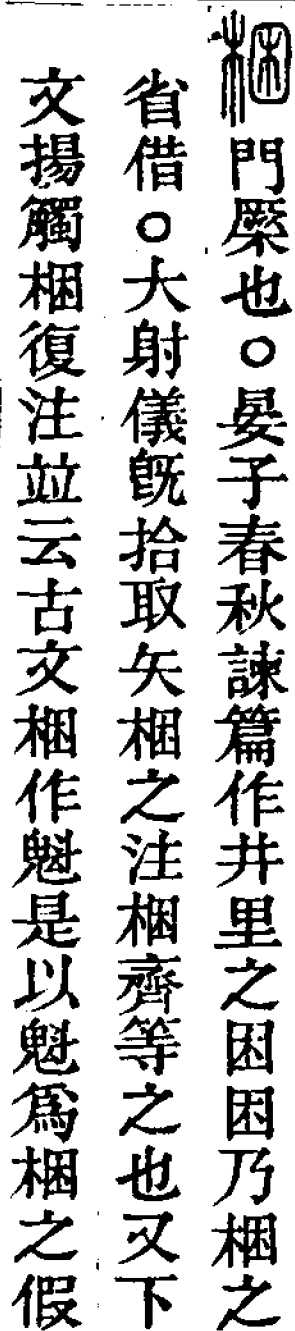 梱門橜也○晏子春秋諫篇作井里之困困乃梱之
省借○大射儀旣拾取矢梱之注梱齊等之也又下
文揚觸梱復注竝云古文梱作魁是以魁爲梱之假